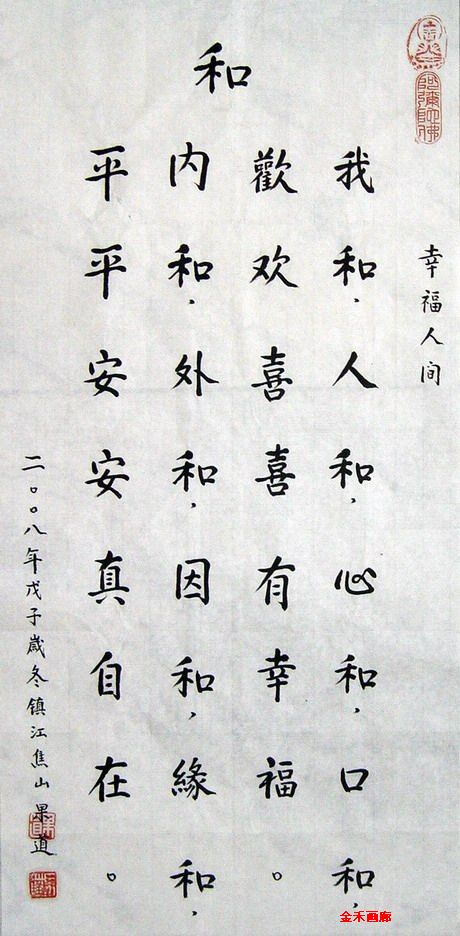 幸福人间
我和，人和，心和，口和，
歡欢喜喜有幸福。
内和，外和，因和，緣和，
平平安安真自在。
和
二〇〇八年戊子歲冬镇江焦山果道
阿彌陀佛
金禾画廊